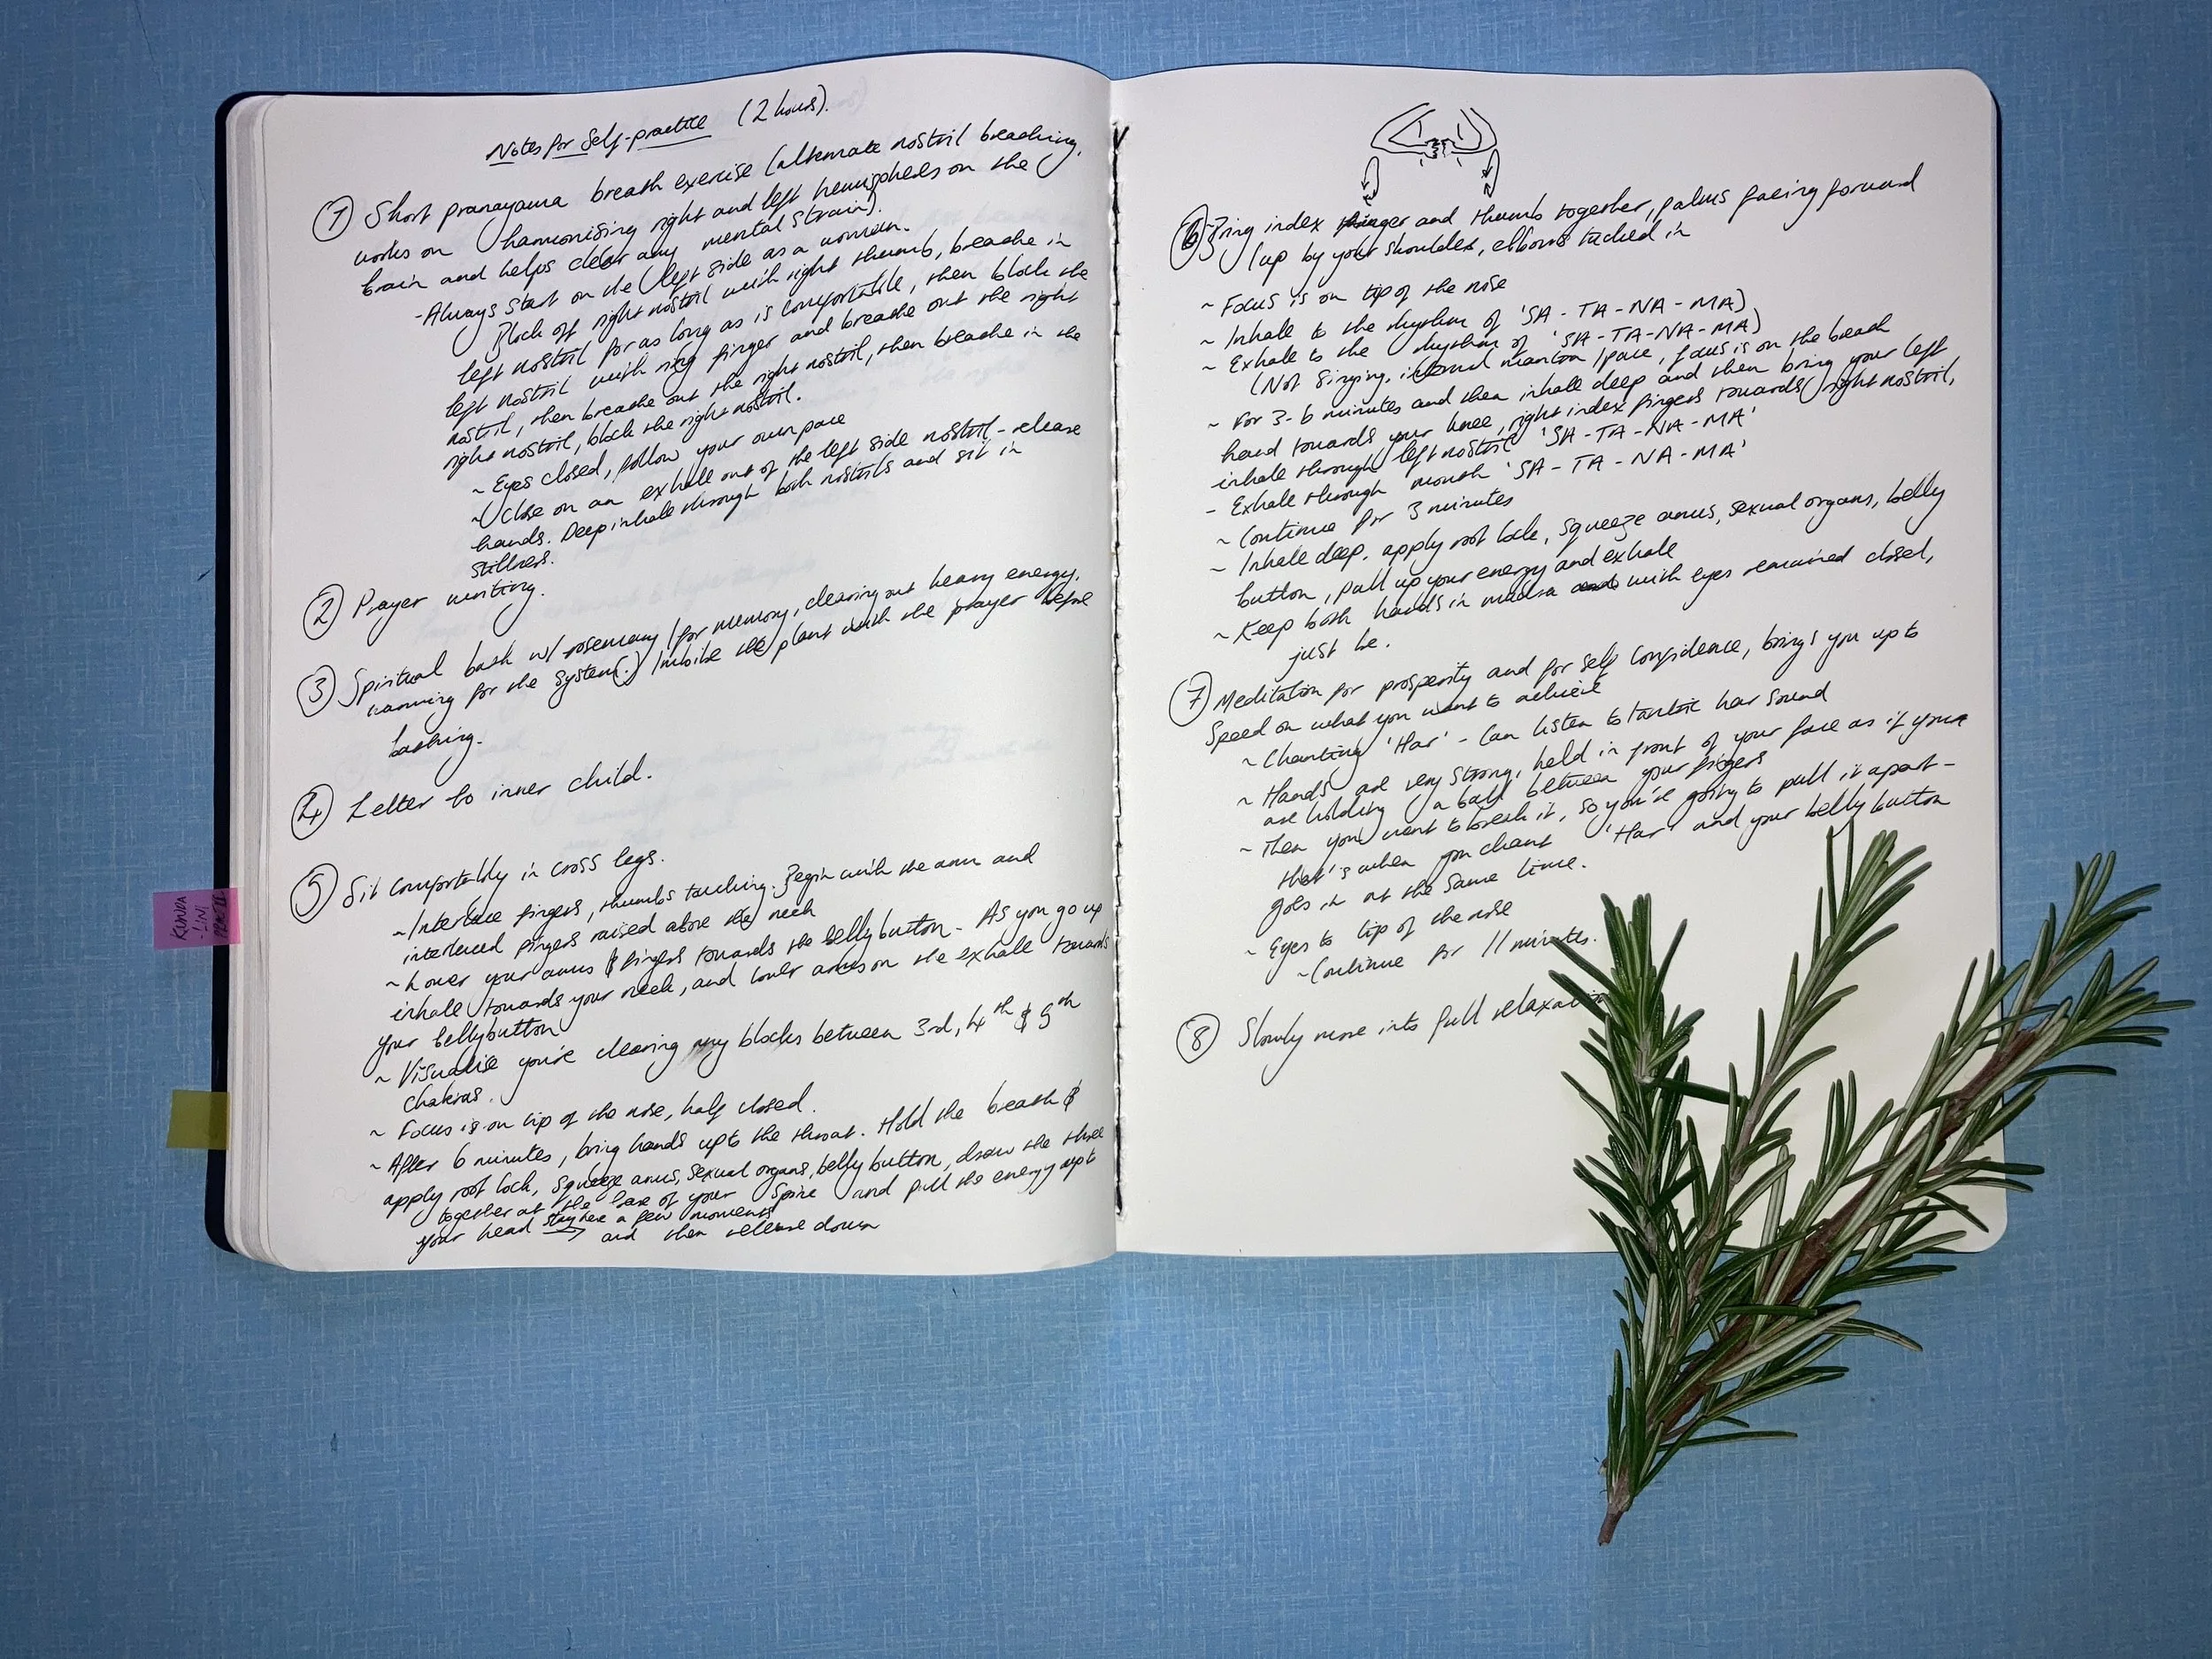 Notes for Self-practice (2 hours).
① Short pranayama breath exercise (alternate nostril breathing,
works on harmonising right and left hemispheres on the
brain and helps clear any mental strain).
-Always start on the left side as a woman.
Block off right nostril with right thumb, breathe in
left nostril for as long as is comfortable, then block the
left nostril with ring finger and breathe out the right
nostril, then breathe out the right nostril, then breathe in the
right nostril, block the right nostril.
~ Eyes closed, follow your own pace
~ Close on an exhale out of the left side nostril - release
hands. Deep inhale through both nostrils and sit in
stillness.
② Prayer writing.
③ Spiritual bath w/ rosemary (for memory, clearing out heavy energy,
warming for the system.) Imbibe the plant with the prayer before
bathing.
④ Letter to inner child.
⑤ Sit comfortably in cross legs.
~ Interlace fingers, thumbs touching. Begin with the arm and
interlaced fingers raised above the neck
~ Lower your arms & fingers towards the belly button - As you go up
inhale towards your neck, and lower arms on the exhale towards
your bellybutton
~ Visualise you're clearing any blocks between 3rd, 4th & 5th
chakras.
~ Focus is on tip of the nose, half closed.
~ After 6 minutes, bring hands up to the throat. Hold the breath &
apply root lock, squeeze anus, sexual organs, belly button, draw the three
together at the base of your spine and pull the energy up to
your head stay here a few moments
and then release down
KUNDA
-LINI
⑥ Bring index finger and thumb together, palms facing forward
(up by your shoulder, elbows tucked in
~ Focus is on tip of the nose
~ Inhale to the rhythm of 'SA - TA - NA - MA)
~ Exhale to the rhythm of 'SA - TA - NA - MA)
(Not singing, internal mantra / pace, focus is on the breath
~ For 3-6 minutes and then inhale deep and then bring your left
hand towards your knee, right index fingers towards right nostril,
inhale through left nostril 'SA - TA - NA - MA'
- Exhale through mouth 'SA - TA - NA - MA'
~ Continue for 3 minutes
~ Inhale deep, apply root lock, squeeze anus, sexual organs, belly
button, pull up your energy and exhale
~ Keep both hands in mudra and with eyes remained closed,
just be.
⑦ Meditation for prosperity and for self confidence, brings you up to
speed on what you want to achieve
~ Chanting 'Har' - Can listen to tantric har sound
~ Hands are very strong, held in front of your face as if your
are holding a ball between your fingers
~ Then you want to break it, so you're going to pull it apart -
that's when you chant 'Har' and your belly button
goes in at the same time.
~ Eyes to tip of the nose
~ Continue for 11 minutes.
⑧ Slowly move into full relaxation